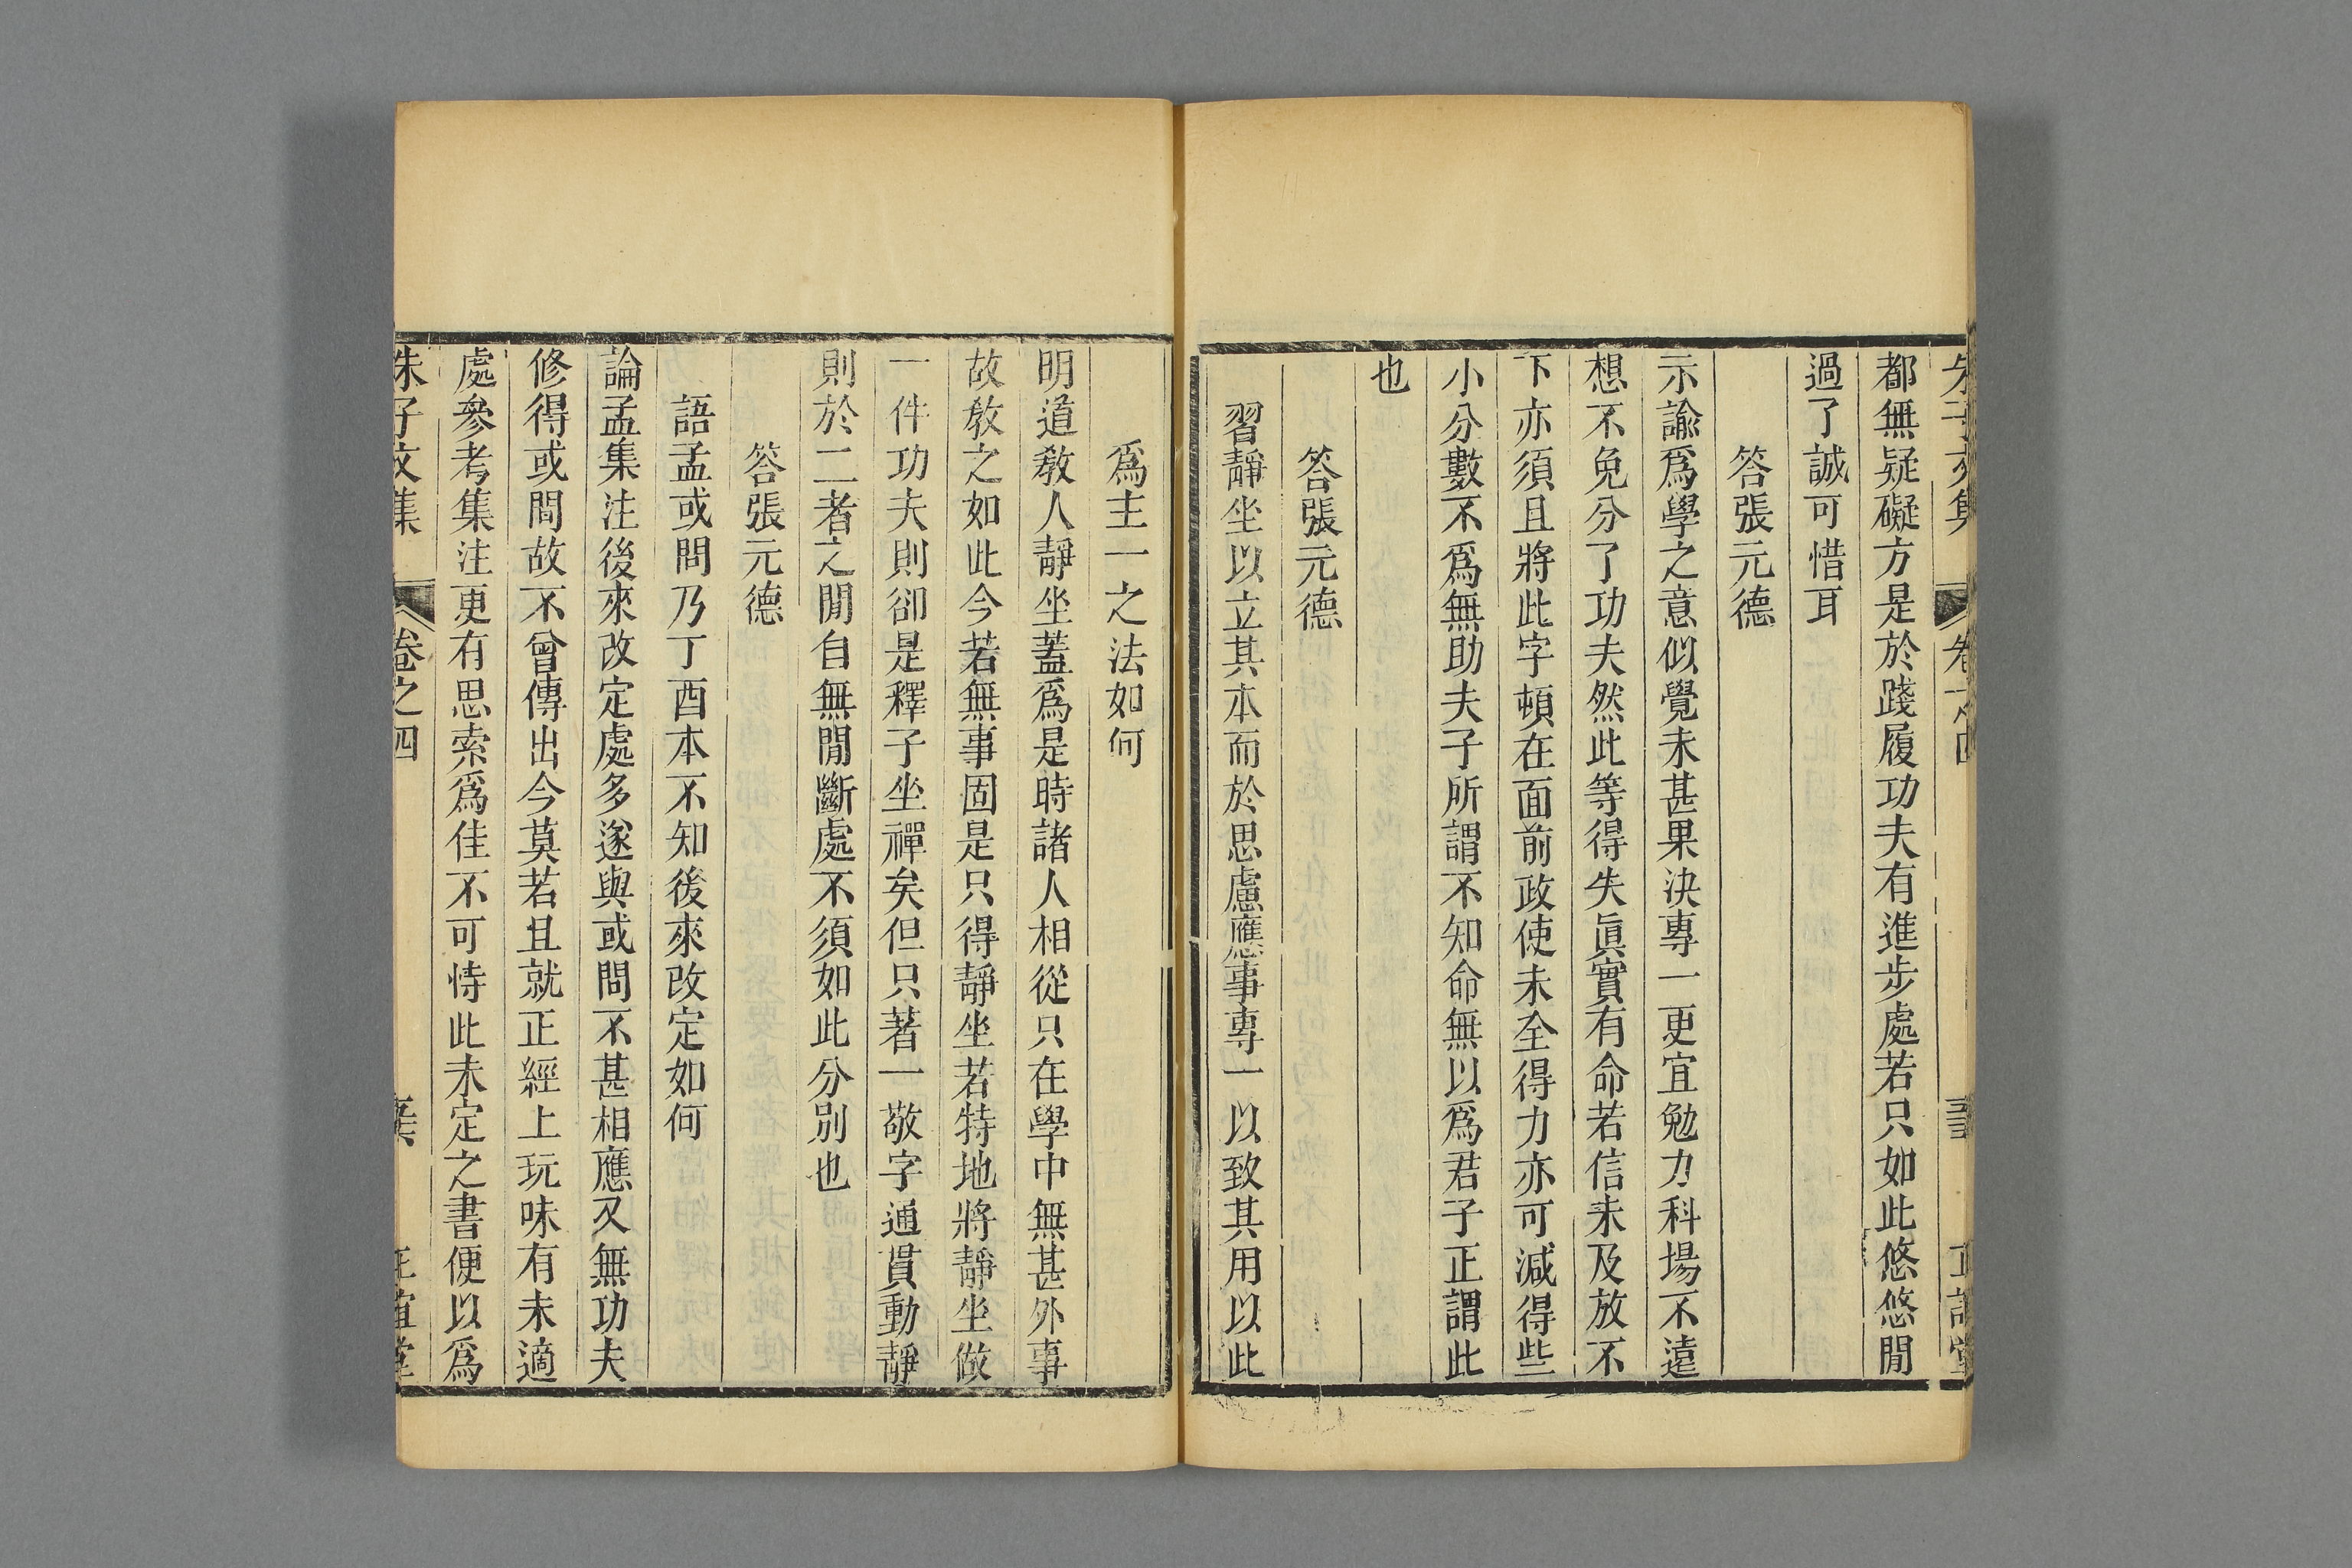 都無疑礙方是於踐履功夫有進步處若只如此悠悠閒
過了誠可惜耳
答張元德
示諭爲學之意似覺未甚果決專一更宜勉力科場不遠
想不免分了功夫然此等得失眞實有命若信未及放不
下亦須且將此字頓在面前政使未全得力亦可減得些
小分數不爲無助夫子所謂不知命無以爲君子正謂此
也
答張元德
習靜坐以立其本而於思慮應事專一以致其用以此
爲主一之法如何
明道敎人靜坐蓋爲是時諸人相從只在學中無甚外事
故敎之如此今若無事固是只得靜坐若特地將靜坐做
一件功夫則卻是釋子坐禪矣但只著一敬字通貫動靜
則於二者之閒自無閒斷處不須如此分別也
答張元德
語孟或問乃丁酉本不知後來改定如何
論孟集注後來改定處多遂與或問不甚相應又無功夫
修得或問故不曾傳出今莫若且就正經上玩味有未適
處參考集注更有思索爲佳不可恃此未定之書便以爲
朱子文集 卷之四